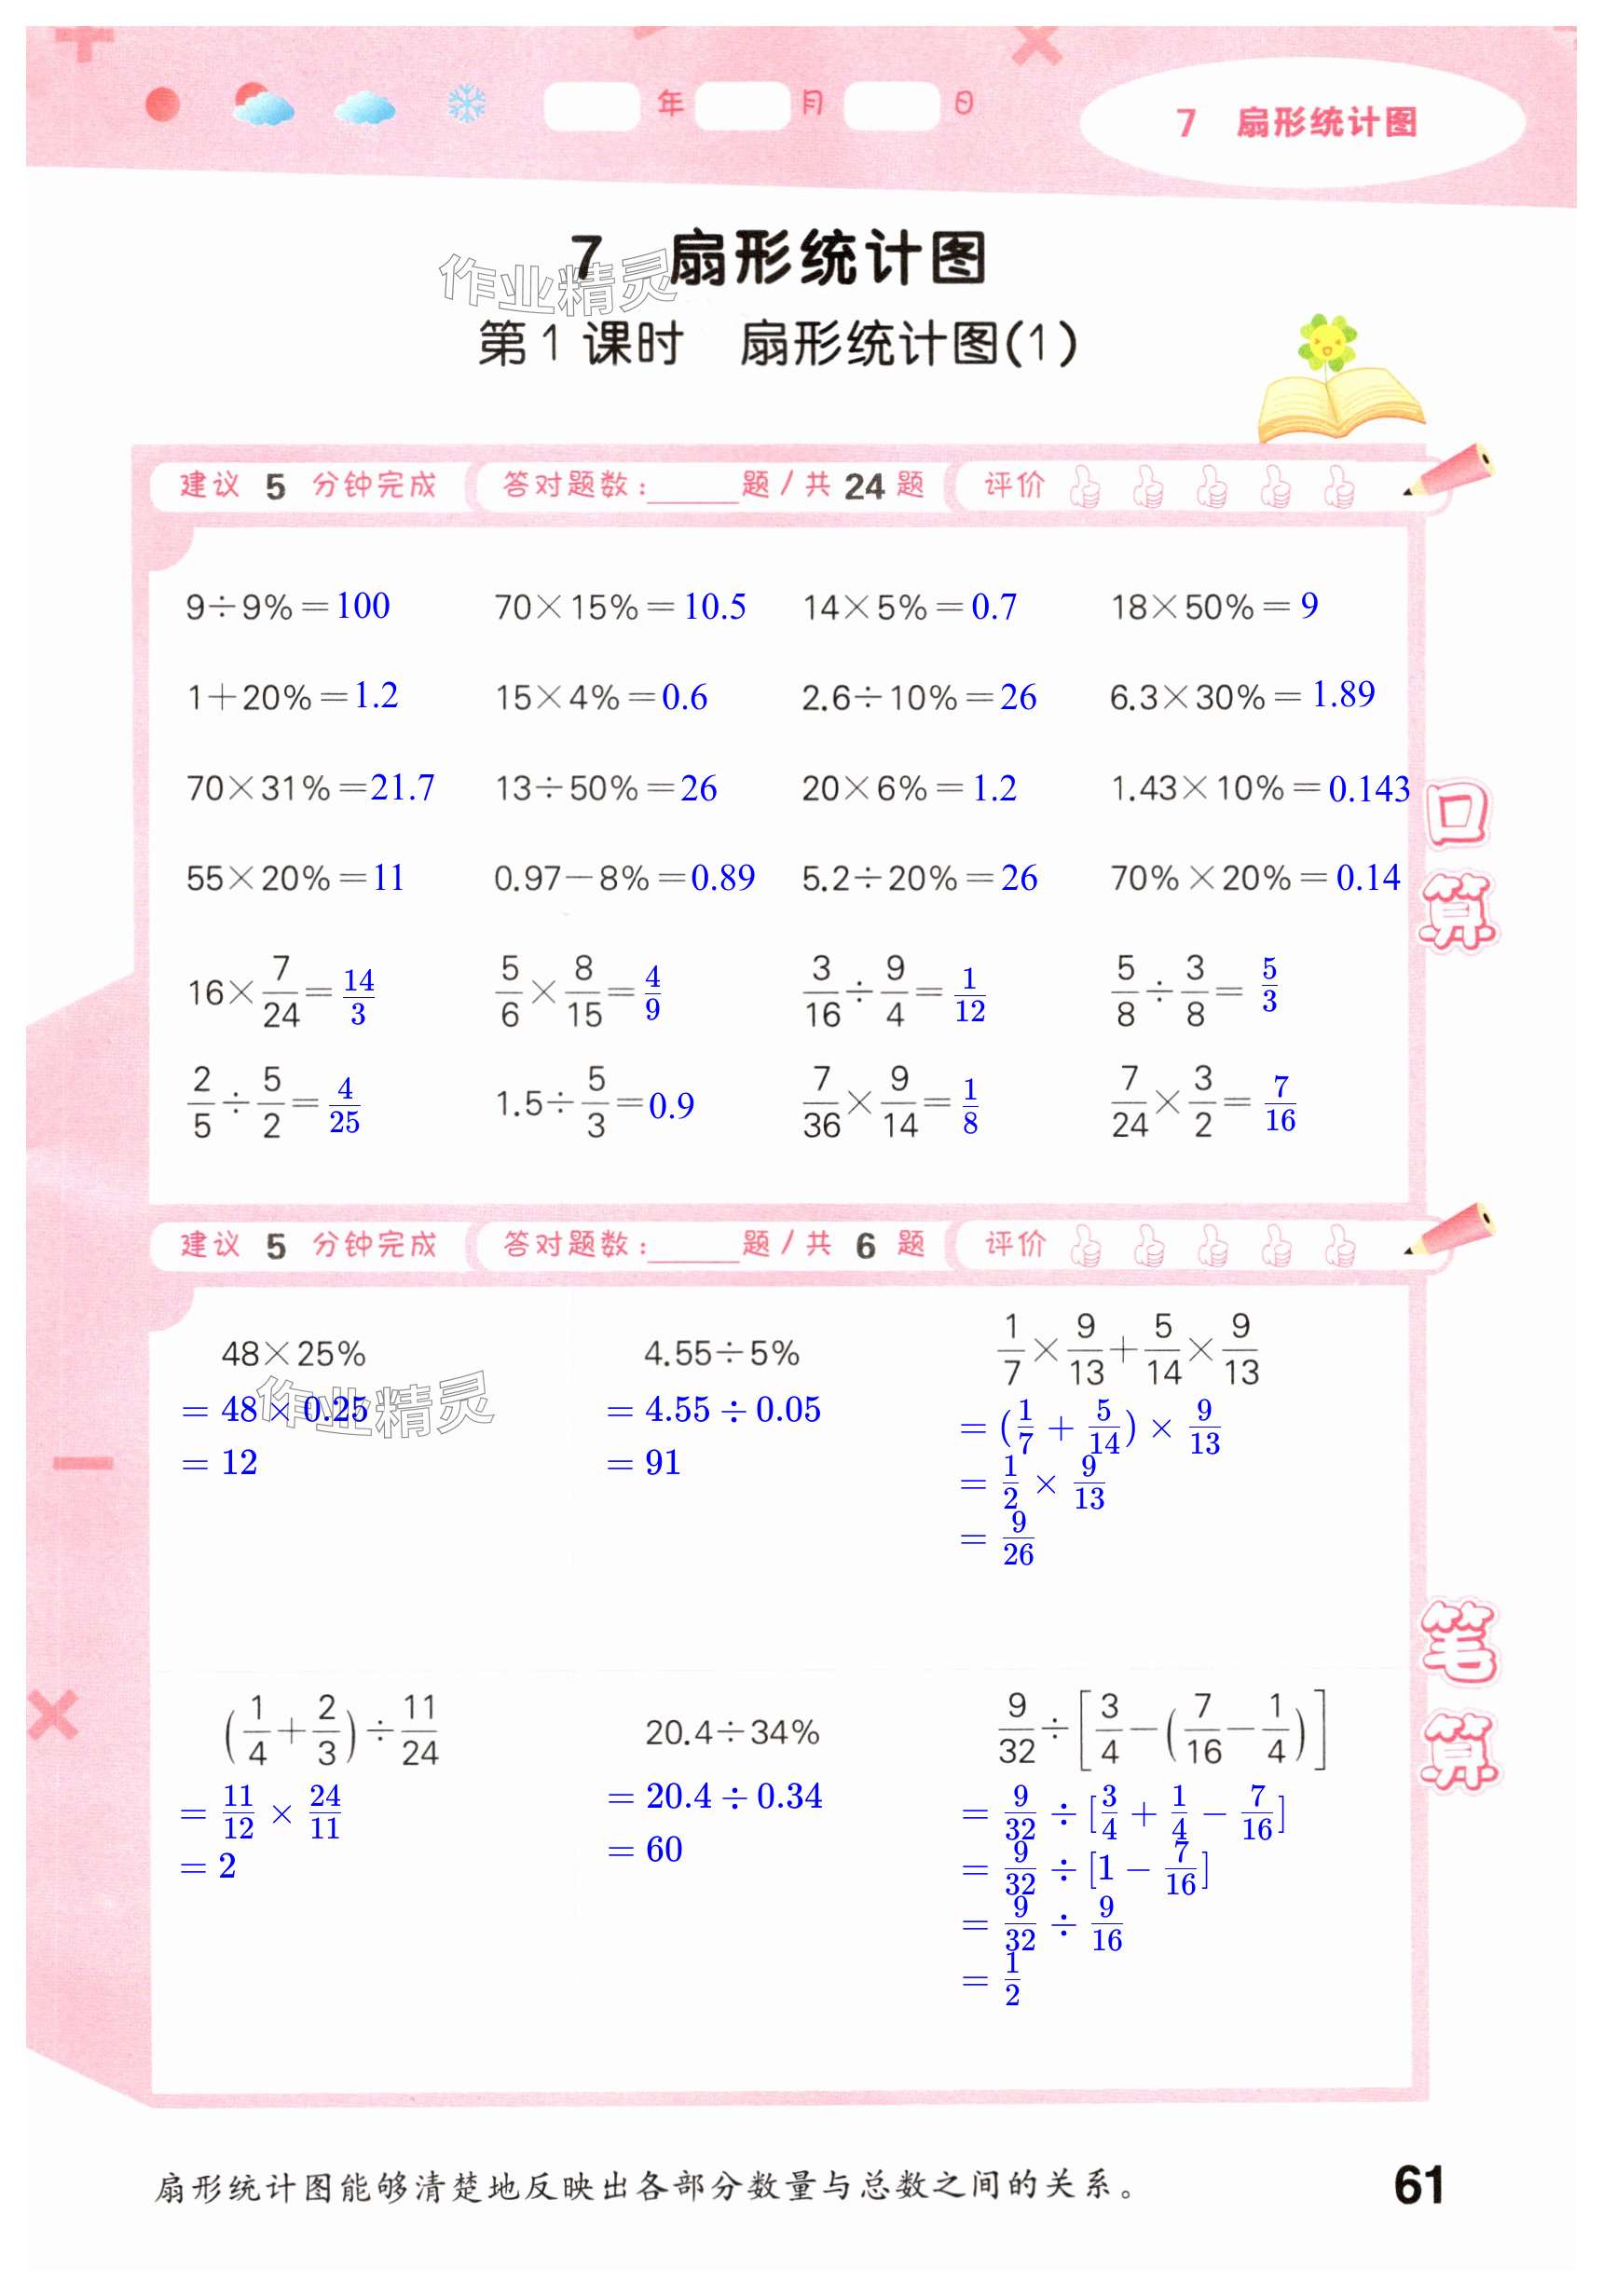 年 月 日
7 扇形统计图
7 扇形统计图
作业精灵
第1课时 扇形统计图(1)
建议 5 分钟完成 答对题数:_____题/共 24 题 评价
9÷9%=100 70×15%=10.5 14×5%=0.7 18×50%=9
1+20%=1.2 15×4%=0.6 2.6÷10%=26 6.3×30%=1.89
70×31%=21.7 13÷50%=26 20×6%=1.2 1.43×10%=0.143
55×20%=11 0.97-8%=0.89 5.2÷20%=26 70%×20%=0.14
16×7/24=14/3 5/6×8/15=4/9 3/16÷9/4=1/12 5/8÷3/8=5/3
2/5÷5/2=4/25 1.5÷5/3=0.9 7/36×9/14=1/8 7/24×3/2=7/16
口算
建议 5 分钟完成 答对题数:_____题/共 6 题 评价
48×25% 4.55÷5% 1/7×9/13+5/14×9/13
=48×0.25 =4.55÷0.05 =(1/7+5/14)×9/13
作业精灵
=12 =91 =1/2×9/13
=9/26
(1/4+2/3)÷11/24 20.4÷34% 9/32÷[3/4-(7/16-1/4)]
=11/12×24/11 =20.4÷0.34 =9/32÷[3/4+1/4-7/16]
=2 =60 =9/32÷[1-7/16]
=9/32÷9/16
=1/2
笔算
扇形统计图能够清楚地反映出各部分数量与总数之间的关系。
61